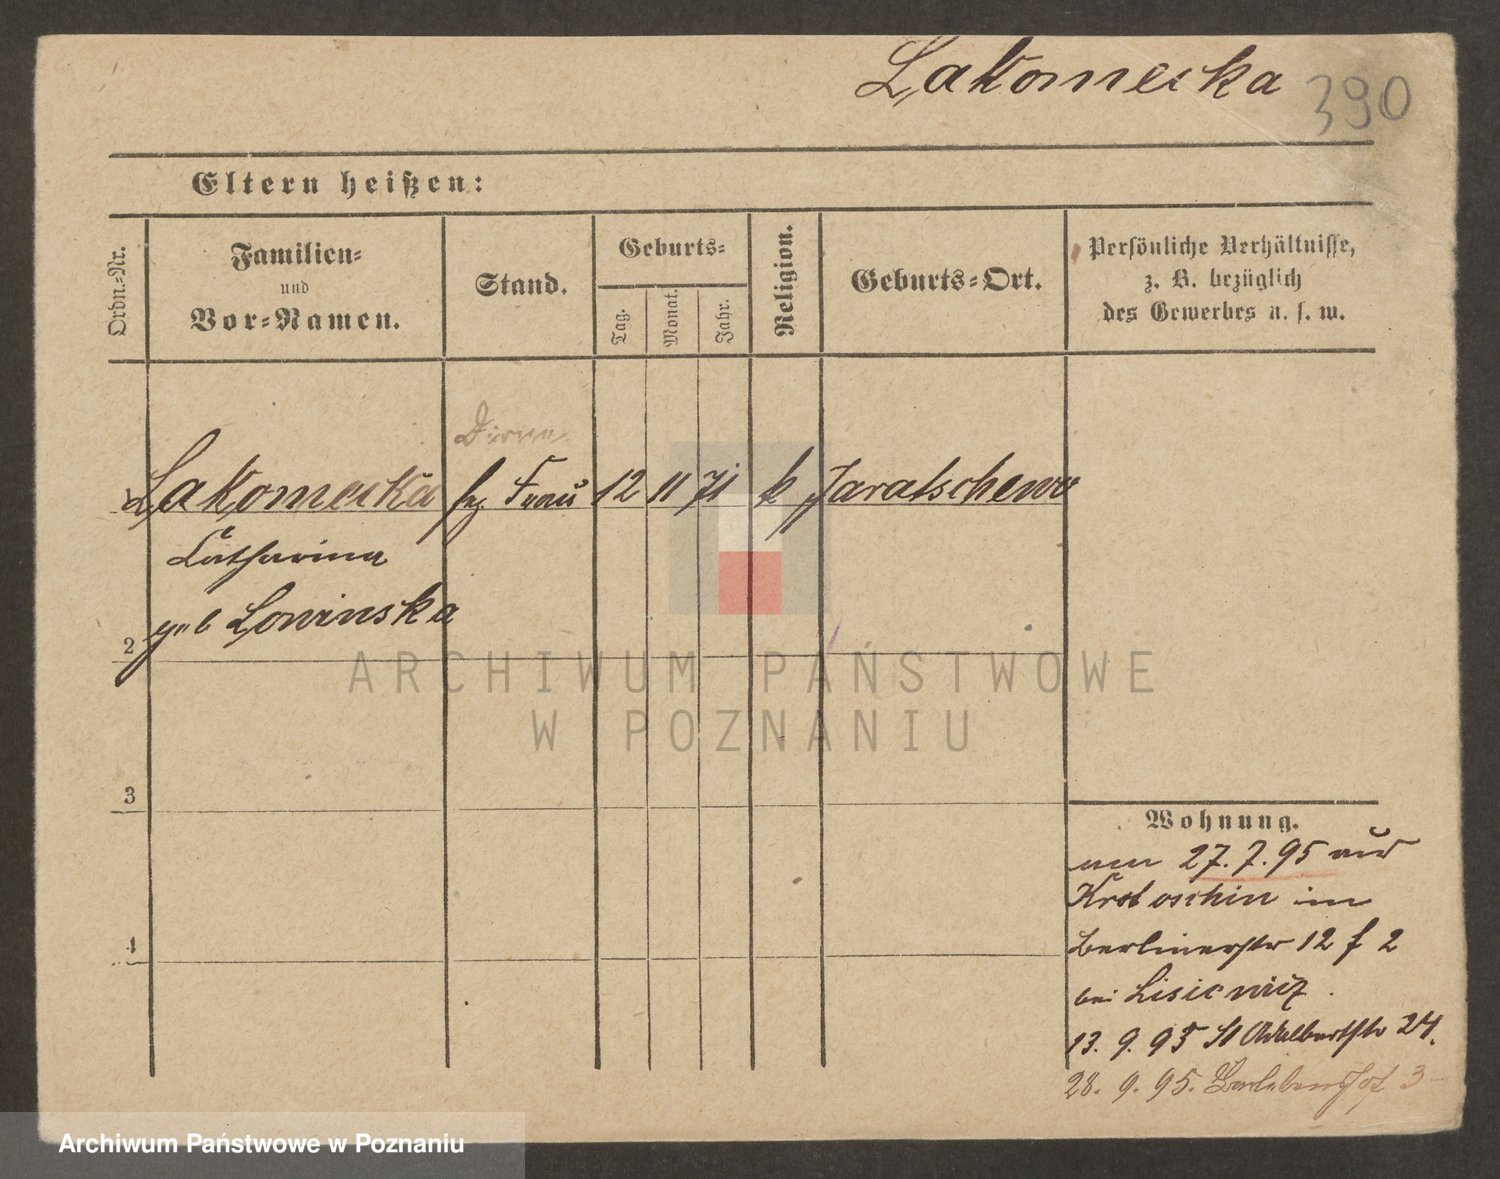 Lakomecka 390
Eltern heißen:
Ordn.-Nr.
Familien-
und
Vor-Namen.
Stand.
Geburts-
Tag.
Monat.
Jahr.
Religion.
Geburts-Ort.
Persönliche Verhältnisse,
z. B. bezüglich
des Gewerbes u. s. w.
Dirne
1 Lakomecka Frau 12 11 71 k Jaratschewo
Catharina
geb Lowinska
2
3
4
Wohnung.
27.7.95 aus
Krotoschin in
Berlinerstr 12 f 2
bei Lisiewicz.
13. 9. 95 St Adalbertstr 24.
28. 9. 95. 3
ARCHIWUM PAŃSTWOWE
W POZNANIU
Archiwum Państwowe w Poznaniu